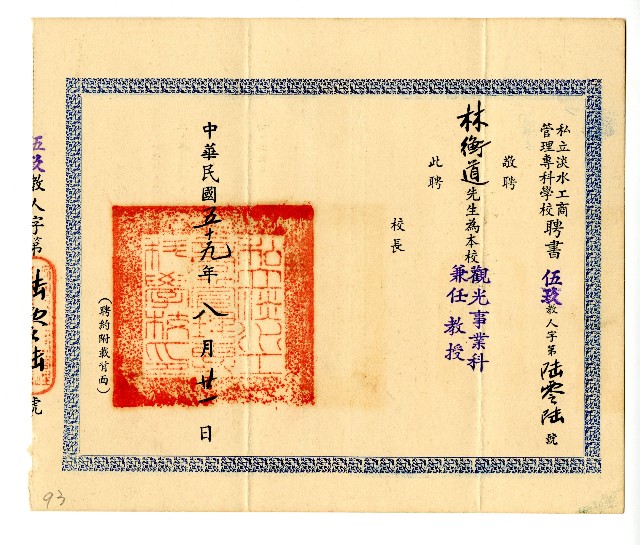 私立淡水工商
管理專科學校
聘書
伍玖教人字第陸零陸號
敬聘
林衡道先生為本校觀光事業科
兼任教授
此聘
校長
中華民國五十九年八月廿一日
(聘約附載背面)
伍玖教人字第陸零陸號
93